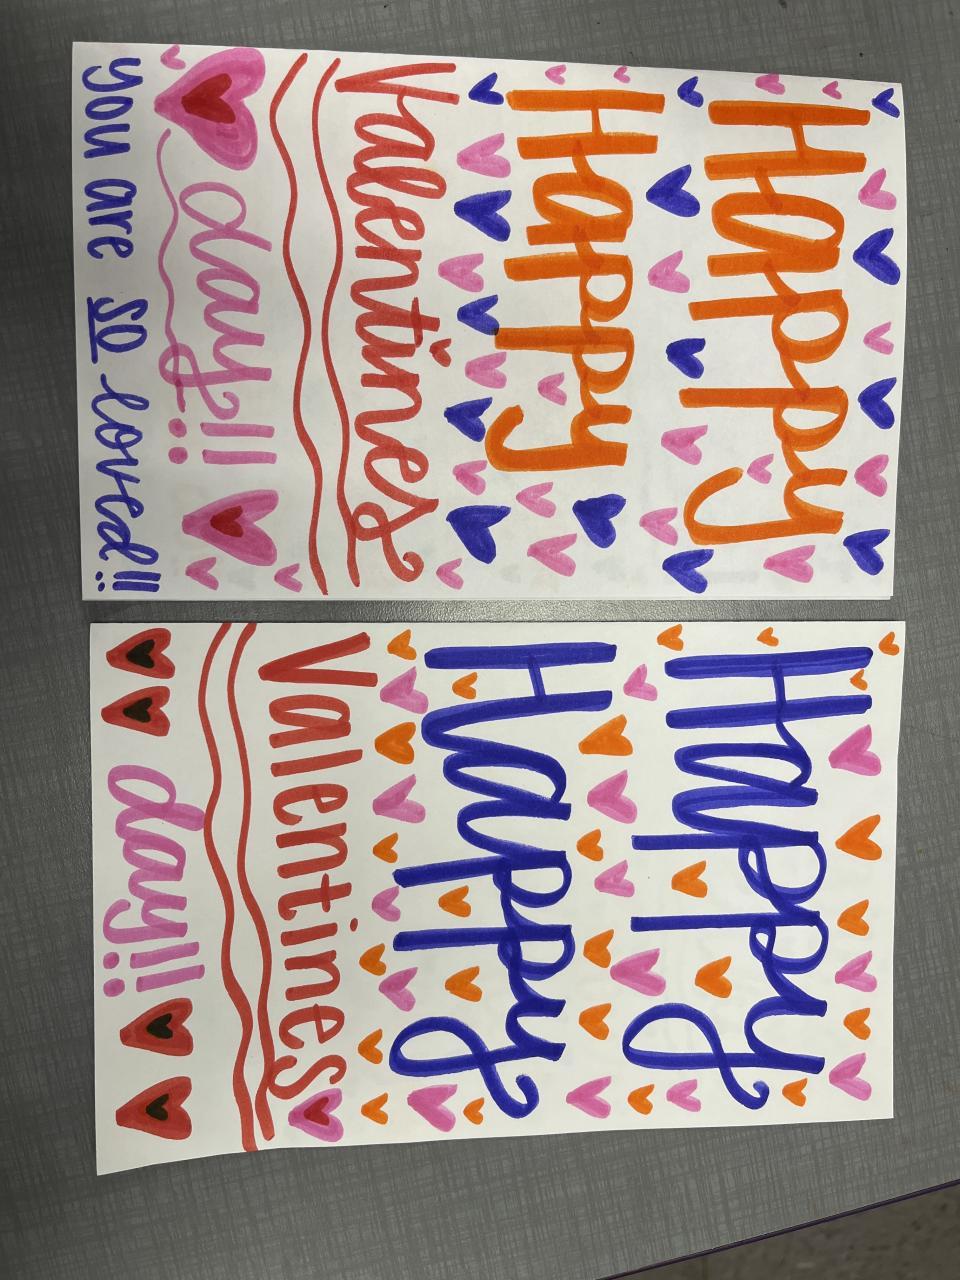 Happy
Happy
Valentines
day!!
you are so loved!!
Happy
Happy
Valentines
day!!